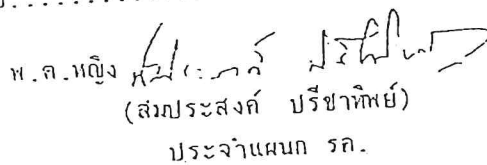 พ.ต.หญิง
(สมประสงค์ ปรีชาทิพย์)
ประจำแผนก รด.